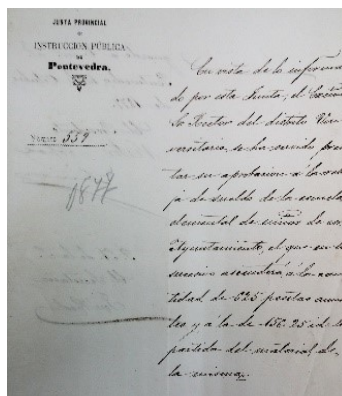 JUNTA PROVINCIAL
DE
INSTRUCCIÓN PÚBLICA
DE
Pontevedra.
Número 559
1877
En vista de lo informa
do por esta Junta, el Excmo
Sr Rector del distrito Uni
versitario, se ha servido pres
tar su aprobacion á la reba
ja de sueldo de la escuela
elemental de niños de ese
Ayuntamiento, el que en lo
sucesivo ascenderá á la can
tidad de 625 pesetas anua
les y á la de 156,25 id la
partida del material de
la misma